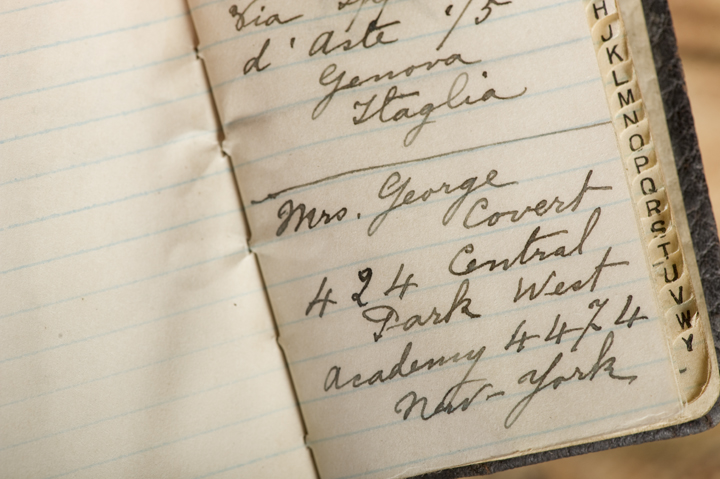 Via
d'Aste 1/5
Genova
Itaglia
Mrs. George
Covert
424 Central
Park West
Academy 4474
New-York
H
J
K
L
M
N
O
P
Q
R
S
T
U
V
W
Y